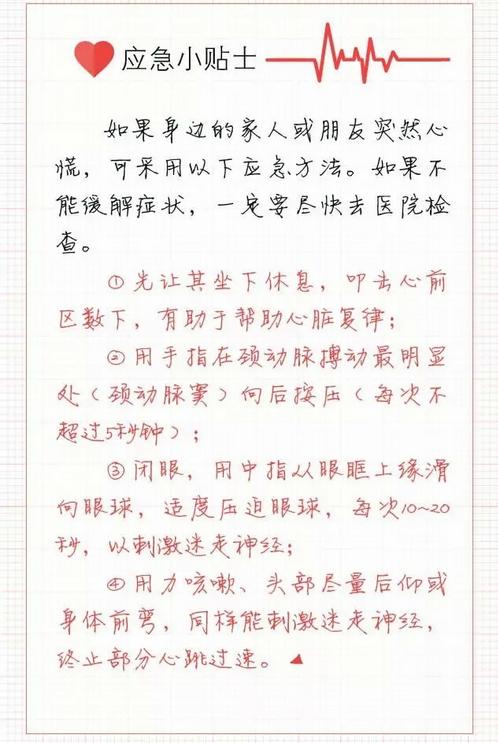 应急小贴士
如果身边的家人或朋友突然心
慌，可采用以下应急方法。如果不
能缓解症状，一定要尽快去医院检
查。
①先让其坐下休息，叩击心前
区数下，有助于帮助心脏复律；
②用手指在颈动脉搏动最明显
处（颈动脉窦）向后按压（每次不
超过5秒钟）；
③闭眼，用中指从眼眶上缘滑
向眼球，适度压迫眼球，每次10~20
秒，以刺激迷走神经；
④用力咳嗽、头部尽量后仰或
身体前弯，同样能刺激迷走神经，
终止部分心跳过速。